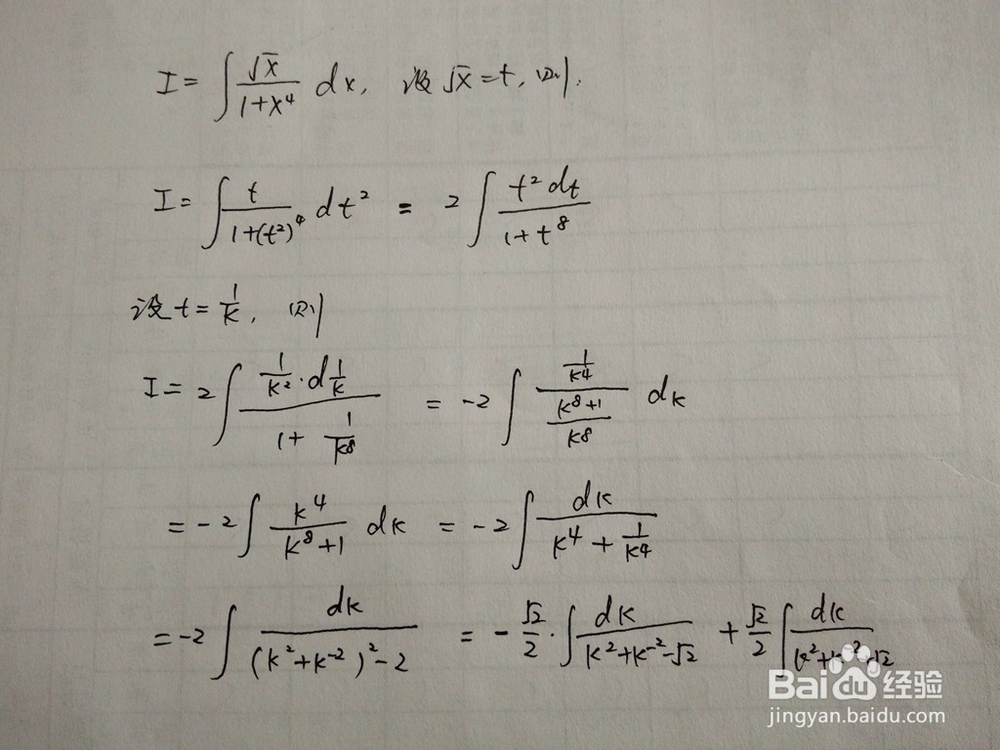 I = ∫ √x / (1+x⁴) dx, 设 √x = t, 则.
I = ∫ t / (1+(t²)⁴) dt² = 2 ∫ t² dt / (1+t⁸)
设 t = 1/k, 则
I = 2 ∫ (1/k² · d 1/k) / (1 + 1/k⁸) = -2 ∫ (1/k⁴) / ((k⁸+1)/k⁸) dk
= -2 ∫ k⁴ / (k⁸+1) dk = -2 ∫ dk / (k⁴ + 1/k⁴)
= -2 ∫ dk / ((k²+k⁻²)²-2) = -√2/2 · ∫ dk / (k²+k⁻²-√2) + √2/2 ∫ dk /
Baidu 经验
jingyan.baidu.com